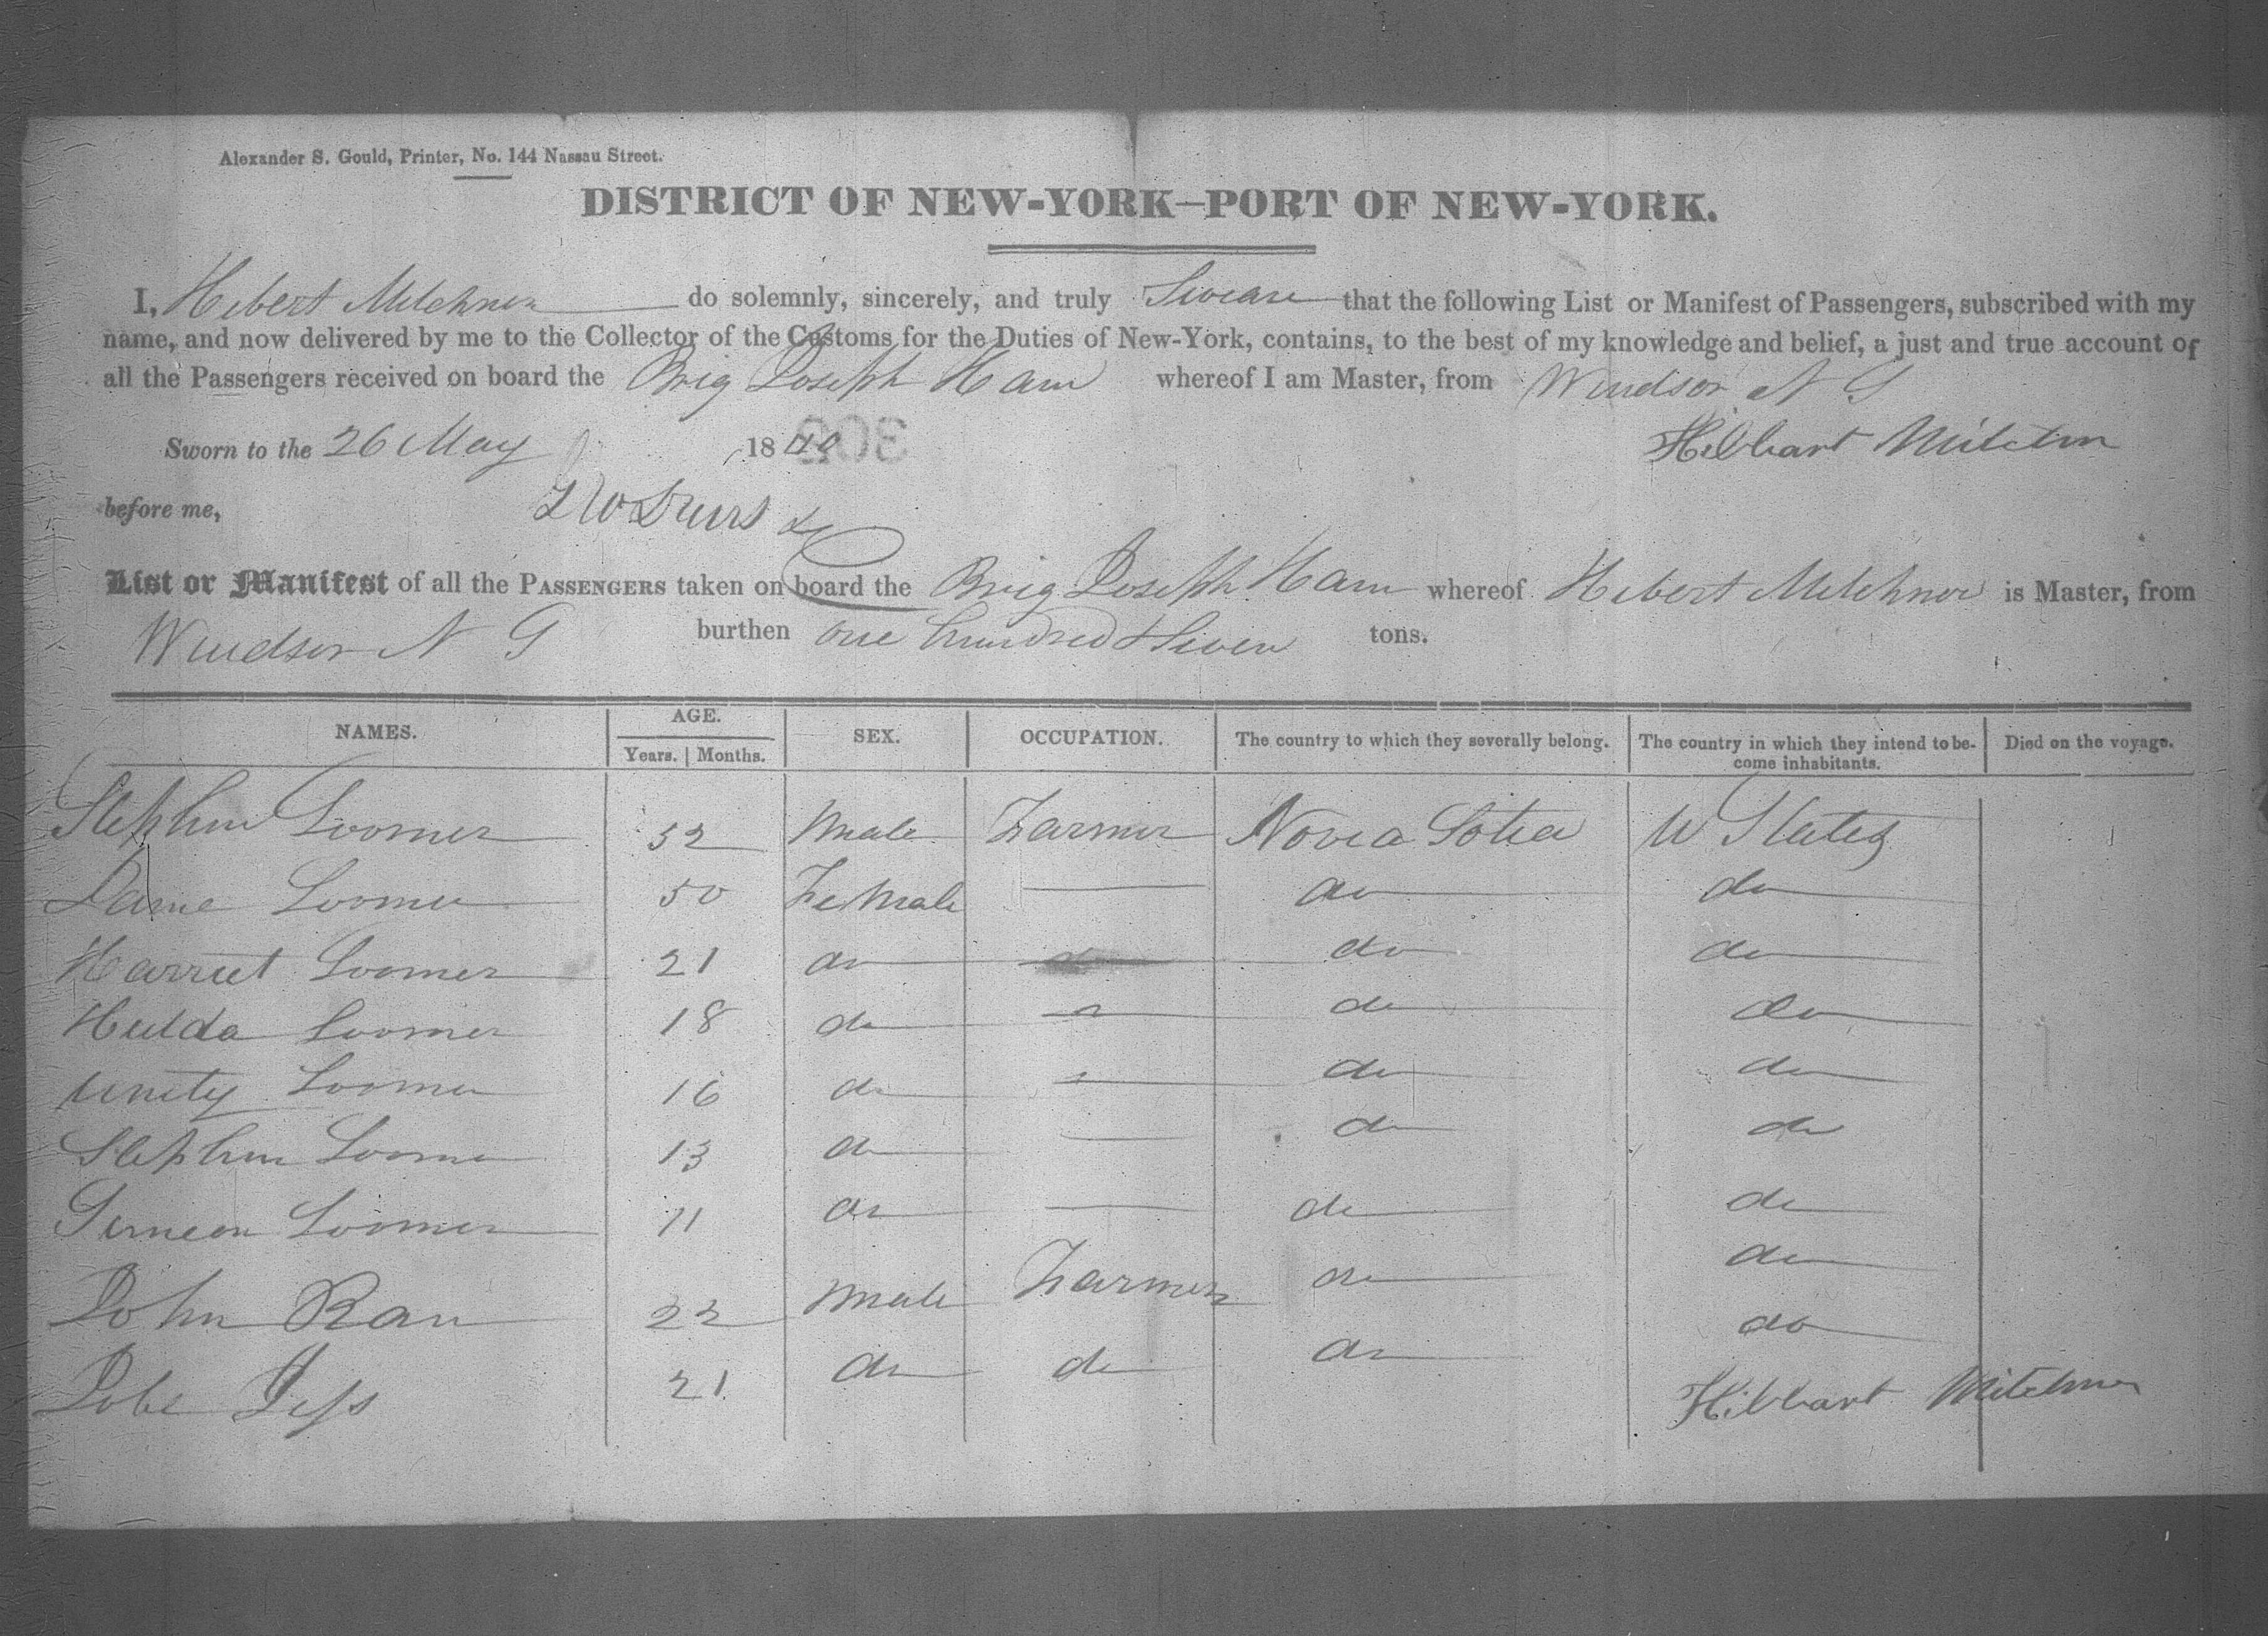 Alexander S. Gould, Printer, No. 144 Nassau Street.
DISTRICT OF NEW-YORK—PORT OF NEW-YORK.
I, Hebert Milchner do solemnly, sincerely, and truly Sweare that the following List or Manifest of Passengers, subscribed with my
name, and now delivered by me to the Collector of the Customs for the Duties of New-York, contains, to the best of my knowledge and belief, a just and true account of
all the Passengers received on board the Brig Joseph Ham whereof I am Master, from Windsor N S
Sworn to the 26 May 1840 302
Hibbart Mitchner
before me,
List or Manifest of all the PASSENGERS taken on board the Brig Joseph Ham whereof Hebert Milchner is Master, from
Windsor N S burthen one hundred & Seven tons.
NAMES. AGE. SEX. OCCUPATION. The country to which they severally belong. The country in which they intend to be- Died on the voyage.
Years. Months. come inhabitants.
Stephen Loomer 52 Male Farmer Novia Sotia U States
Jame Loomer 50 Female do do
Harriet Loomer 21 do do do do
Hulda Loomer 18 do do do
Unity Loomer 16 do do do
Stephen Loomer 13 do do do
Simeon Loomer 11 do do do
John Ran 22 Male Farmer do do
Jobe 21 do do do do
Hibbart Mitchner